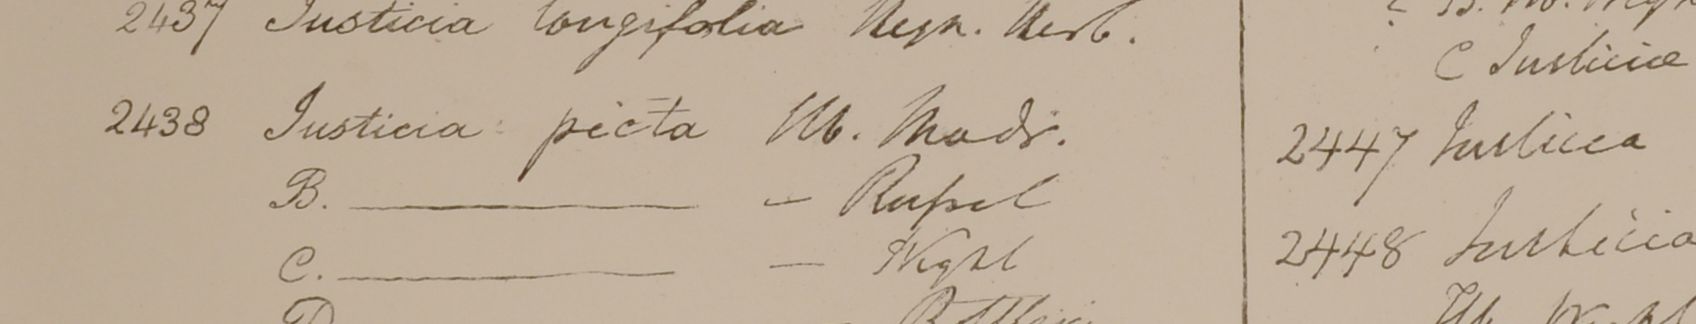 2437 Justicia longifolia Heyn. Herb.
2438 Justicia picta Hb. Madr.
B. ——— – Rufsel
C. ——— — Wight
D
C Justiciæ
2447 Justicea
2448 Justicia
Hb. Wight